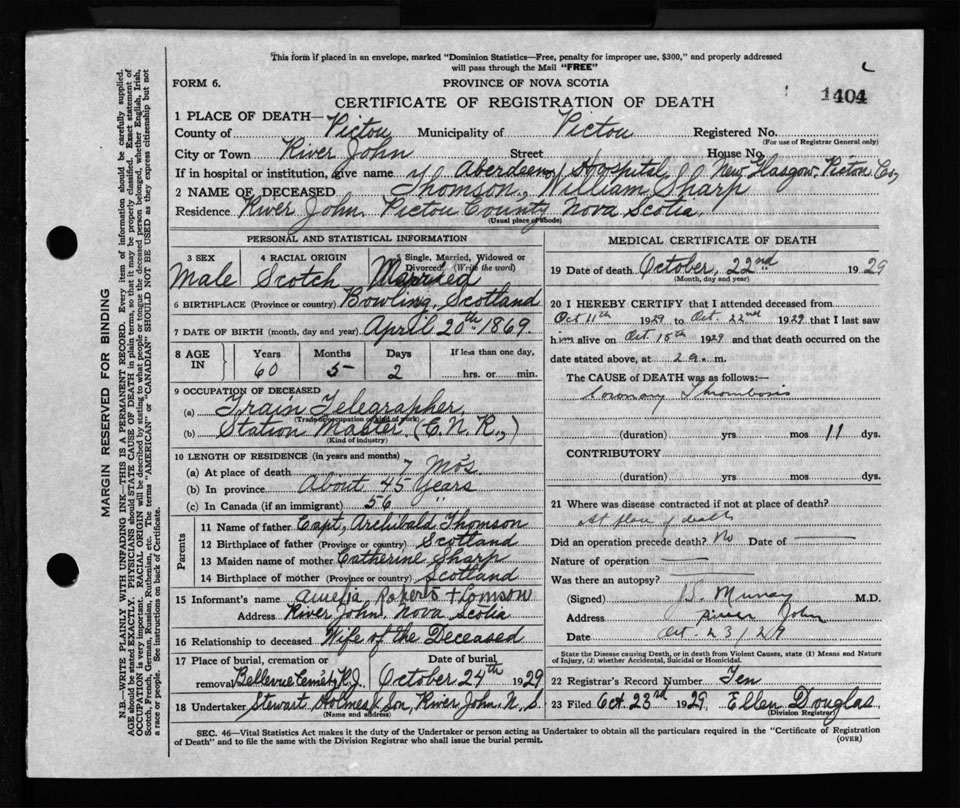 This form if placed in an envelope, marked "Dominion Statistics—Free, penalty for improper use, $300," and properly addressed
will pass through the Mail "FREE"
FORM 6.
PROVINCE OF NOVA SCOTIA
CERTIFICATE OF REGISTRATION OF DEATH
1404
1 PLACE OF DEATH—
County of Pictou Municipality of Pictou Registered No.
(For use of Registrar General only)
City or Town River John Street House No.
If in hospital or institution, give name Aberdeen Hospital, New Glasgow, Pictou Co,
2 NAME OF DECEASED Thomson, William Sharp
Residence River John, Pictou County Nova Scotia.
(Usual place of abode)
PERSONAL AND STATISTICAL INFORMATION
3 SEX Male
4 RACIAL ORIGIN Scotch
5 Single, Married, Widowed or Divorced (Write the word) Married
6 BIRTHPLACE (Province or country) Bowling, Scotland
7 DATE OF BIRTH (month, day and year) April 20th 1869.
8 AGE IN
Years Months Days If less than one day,
60 5 2 hrs. or min.
9 OCCUPATION OF DECEASED
(a) Train Telegrapher,
(Trade or occupation or kind of work)
(b) Station Master (C.N.R.,)
(Kind of industry)
10 LENGTH OF RESIDENCE (in years and months)
(a) At place of death 7 Mos.
(b) In province About 45 Years
(c) In Canada (if an immigrant) 56 "
Parents
11 Name of father Capt, Archibald Thomson
12 Birthplace of father (Province or country) Scotland
13 Maiden name of mother Catherine Sharp
14 Birthplace of mother (Province or country) Scotland
15 Informant's name Amelia Roberts Thomson
Address River John, Nova Scotia
16 Relationship to deceased Wife of the Deceased
17 Place of burial, cremation or removal Bellevue Cemet, R.J.
Date of burial October 24th 1929
18 Undertaker Stewart Holmes & Son, River John, N.S.
(Name and address)
MEDICAL CERTIFICATE OF DEATH
19 Date of death October, 22nd 1929
(Month, day and year)
20 I HEREBY CERTIFY that I attended deceased from
Oct 11th 1929 to Oct. 22nd 1929 that I last saw
him alive on Oct 15th 1929 and that death occurred on the
date stated above, at 2 a. m.
The CAUSE of DEATH was as follows:—
Coronary Thrombosis
(duration) yrs mos 11 dys.
CONTRIBUTORY
(duration) yrs mos dys.
21 Where was disease contracted if not at place of death?
At place of death
Did an operation precede death? No Date of
Nature of operation
Was there an autopsy?
(Signed) Murray M.D.
Address River John
Date Oct. 23/29
State the Disease causing Death, or in death from Violent Causes, state (1) Means and Nature
of Injury, (2) whether Accidental, Suicidal or Homicidal.
22 Registrar's Record Number Ten
23 Filed Oct 23rd 1929. Ellen Douglas
(Division Registrar)
SEC. 46—Vital Statistics Act makes it the duty of the Undertaker or person acting as Undertaker to obtain all the particulars required in the "Certificate of Registration
of Death" and to file the same with the Division Registrar who shall issue the burial permit.
(OVER)
MARGIN RESERVED FOR BINDING
N.B.—WRITE PLAINLY WITH UNFADING INK—THIS IS A PERMANENT RECORD. Every item of information should be carefully supplied.
AGE should be stated EXACTLY. PHYSICIANS should STATE CAUSE OF DEATH in plain terms so that it may be properly classified. Exact statement of
OCCUPATION is very important. RACIAL ORIGIN will be described by stating to what people or tongue the deceased person belonged, whether English, Irish,
Scotch, French, German, Russian, Ruthenian, etc. The terms "AMERICAN" or "CANADIAN" SHOULD NOT BE USED as they express citizenship but not
a race or people. See instructions on back of Certificate.